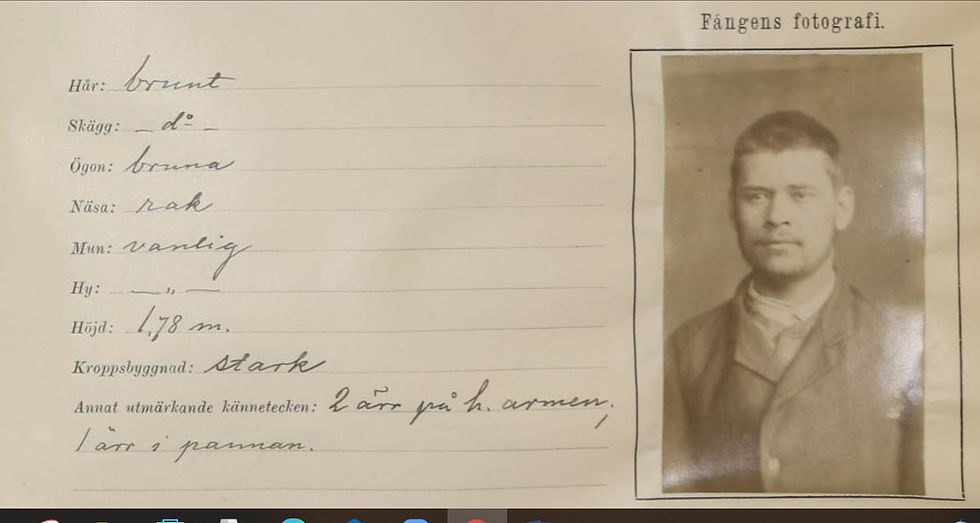 Fångens fotografi.
Hår: brunt
Skägg: — dº —
Ögon: bruna
Näsa: rak
Mun: vanlig
Hy: — „ —
Höjd: 1,78 m.
Kroppsbyggnad: stark
Annat utmärkande kännetecken: 2 ärr på h. armen,
1 ärr i pannan.